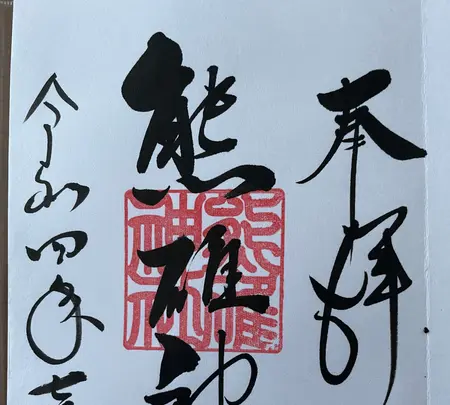 奉拝
熊碓神
熊碓
神社
令和四年